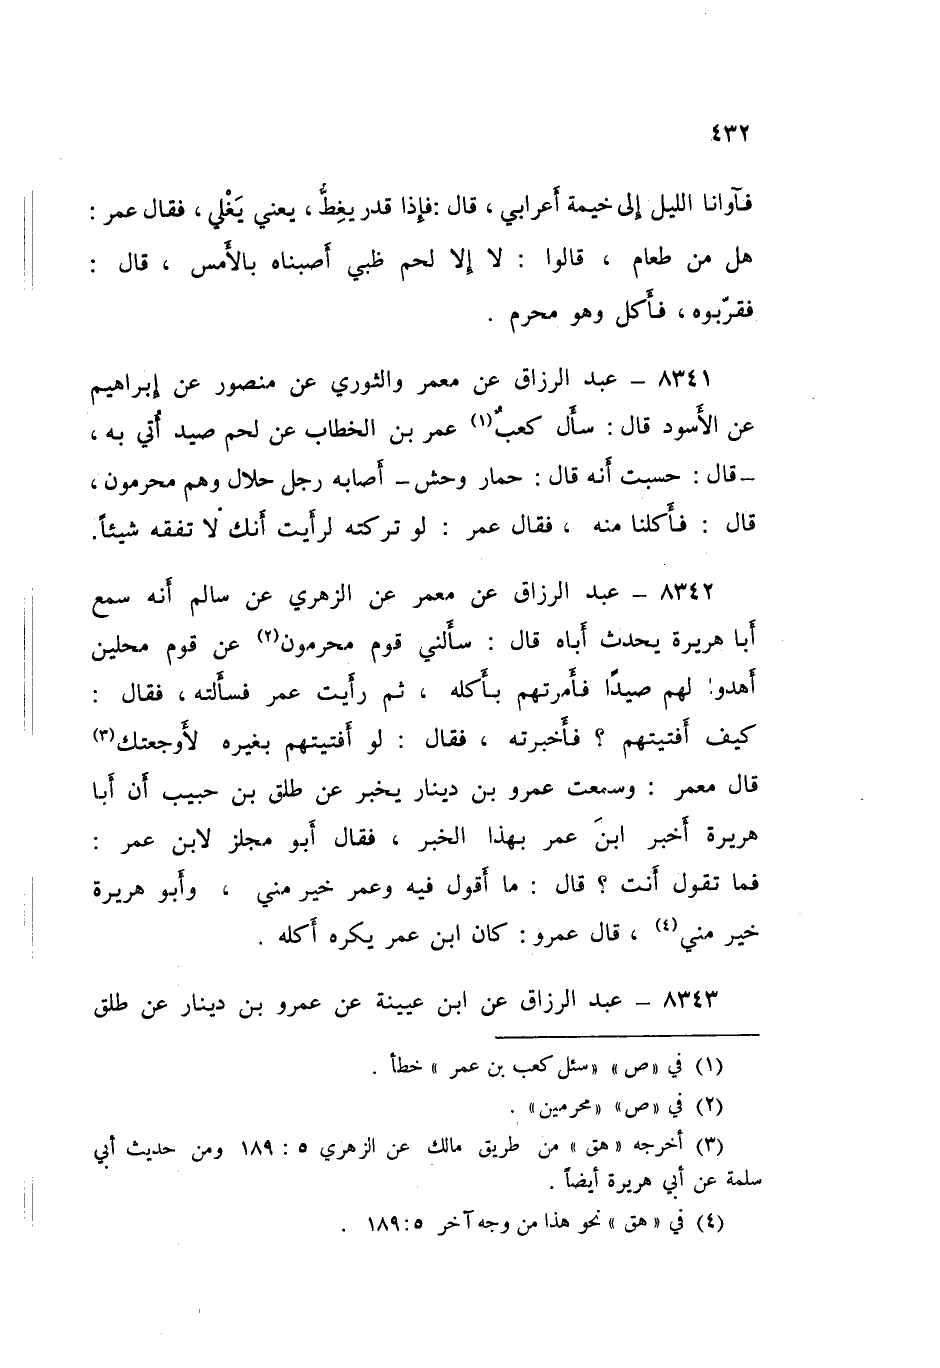 ٤٣٢
فآوانا الليل إلى خيمة أعرابي ، قال :فإذا قدر يغِطُّ ، يعني يَغْلي ، فقال عمر :
هل من طعام ، قالوا : لا إلا لحم ظبي أصبناه بالأمس ، قال :
فقرّبوه ، فأكل وهو محرم .
٨٣٤١ – عبد الرزاق عن معمر والثوري عن منصور عن إبراهيم
عن الأسود قال : سأل كعبٌ(١) عمر بن الخطاب عن لحم صيد أُتي به ،
–قال : حسبت أنه قال : حمار وحش– أصابه رجل حلال وهم محرمون ،
قال : فأكلنا منه ، فقال عمر : لو تركته لرأيت أنك لا تفقه شيئاً.
٨٣٤٢ – عبد الرزاق عن معمر عن الزهري عن سالم أنه سمع
أبا هريرة يحدث أباه قال : سألني قوم محرمون(٢) عن قوم محلين
أهدوا لهم صيدًا فأمرتهم بأكله ، ثم رأيت عمر فسألته ، فقال :
كيف أفتيتهم ؟ فأخبرته ، فقال : لو أفتيتهم بغيره لأوجعتك(٣)
قال معمر : وسمعت عمرو بن دينار يخبر عن طلق بن حبيب أن أبا
هريرة أخبر ابنَ عمر بهذا الخبر ، فقال أبو مجلز لابن عمر :
فما تقول أنت ؟ قال : ما أقول فيه وعمر خير مني ، وأبو هريرة
خير مني(٤) ، قال عمرو : كان ابن عمر يكره أكله .
٨٣٤٣ – عبد الرزاق عن ابن عيينة عن عمرو بن دينار عن طلق
(١) في «ص» «سئل كعب بن عمر » خطأ .
(٢) في «ص» «محرمين» .
(٣) أخرجه «هق » من طريق مالك عن الزهري ٥ : ١٨٩ ومن حديث أبي
سلمة عن أبي هريرة أيضاً .
(٤) في « هق » نحو هذا من وجه آخر ٥ :١٨٩ .